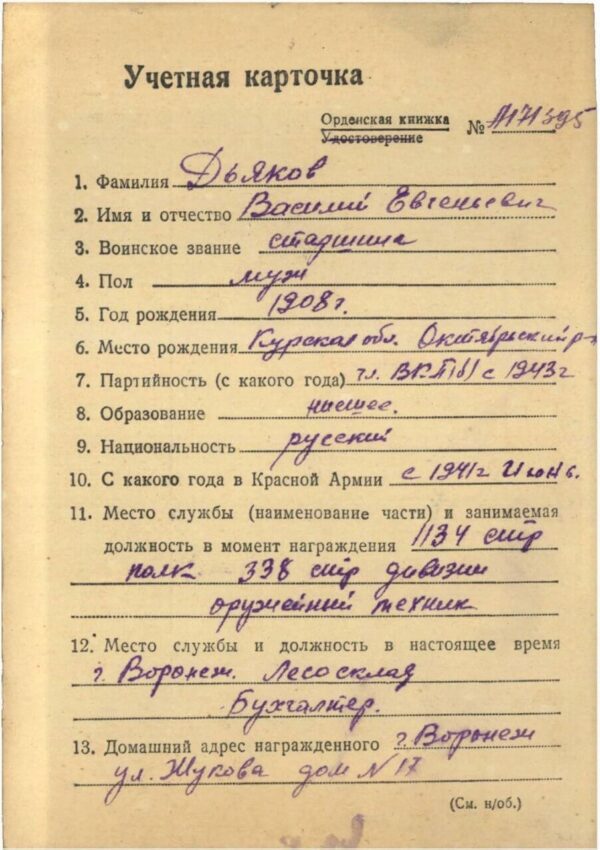 Учетная карточка
Орденская книжка
Удостоверение № А171395
1. Фамилия Дьяков
2. Имя и отчество Василий Евгеньевич
3. Воинское звание старшина
4. Пол муж
5. Год рождения 1908 г.
6. Место рождения Курская обл. Октябрьский р-н
7. Партийность (с какого года) чл. ВКП(б) с 1943 г
8. Образование низшее.
9. Национальность русский
10. С какого года в Красной Армии с 1941 г Июнь.
11. Место службы (наименование части) и занимаемая
должность в момент награждения 1134 стр
полк 338 стр дивизии
оружейный техник
12. Место службы и должность в настоящее время
г. Воронеж. Лесосклад
Бухгалтер.
13. Домашний адрес награжденного г. Воронеж
ул. Жукова дом N 17
(См. н/об.)